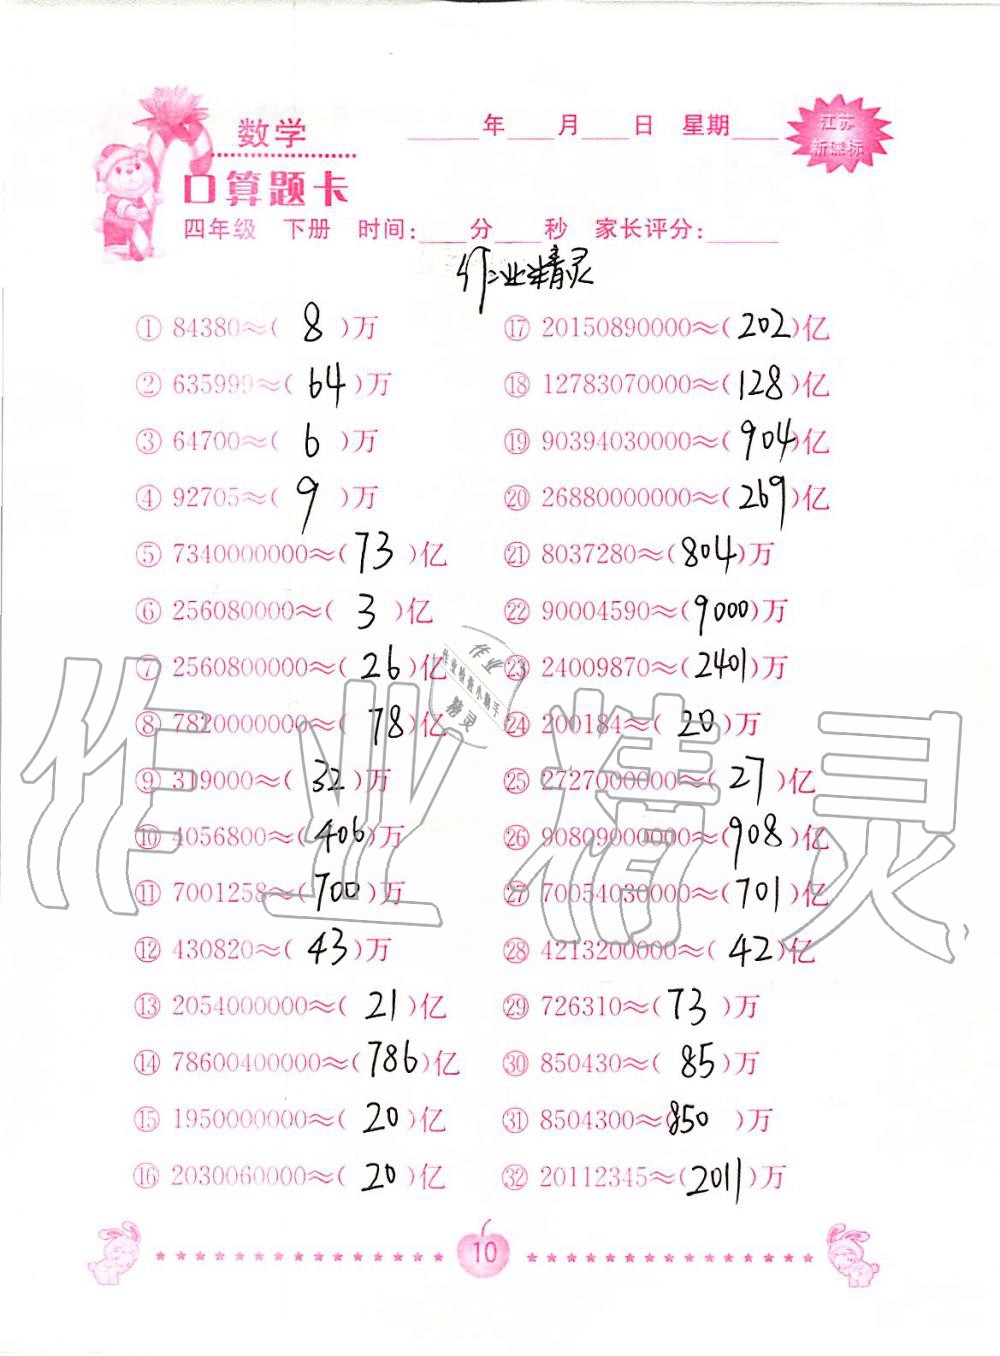 数学
____年___月___日 星期___
江苏
新课标
口算题卡
四年级 下册 时间:___分___秒 家长评分:____
作业精灵
① 84380≈( 8 )万
② 635999≈( 64 )万
③ 64700≈( 6 )万
④ 92705≈( 9 )万
⑤ 7340000000≈( 73 )亿
⑥ 256080000≈( 3 )亿
⑦ 2560800000≈( 26 )亿
⑧ 7820000000≈( 78 )亿
⑨ 319000≈( 32 )万
⑩ 4056800≈( 406 )万
⑪ 7001258≈( 700 )万
⑫ 430820≈( 43 )万
⑬ 2054000000≈( 21 )亿
⑭ 78600400000≈( 786 )亿
⑮ 1950000000≈( 20 )亿
⑯ 2030060000≈( 20 )亿
⑰ 20150890000≈( 202 )亿
⑱ 12783070000≈( 128 )亿
⑲ 90394030000≈( 904 )亿
⑳ 26880000000≈( 269 )亿
㉑ 8037280≈( 804 )万
㉒ 90004590≈( 9000 )万
㉓ 24009870≈( 2401 )万
㉔ 200184≈( 20 )万
㉕ 2727000000≈( 27 )亿
㉖ 90809000000≈( 908 )亿
㉗ 70054030000≈( 701 )亿
㉘ 4213200000≈( 42 )亿
㉙ 726310≈( 73 )万
㉚ 850430≈( 85 )万
㉛ 8504300≈( 850 )万
㉜ 20112345≈( 2011 )万
作业
作业检查小助手
精灵
作业精灵
10